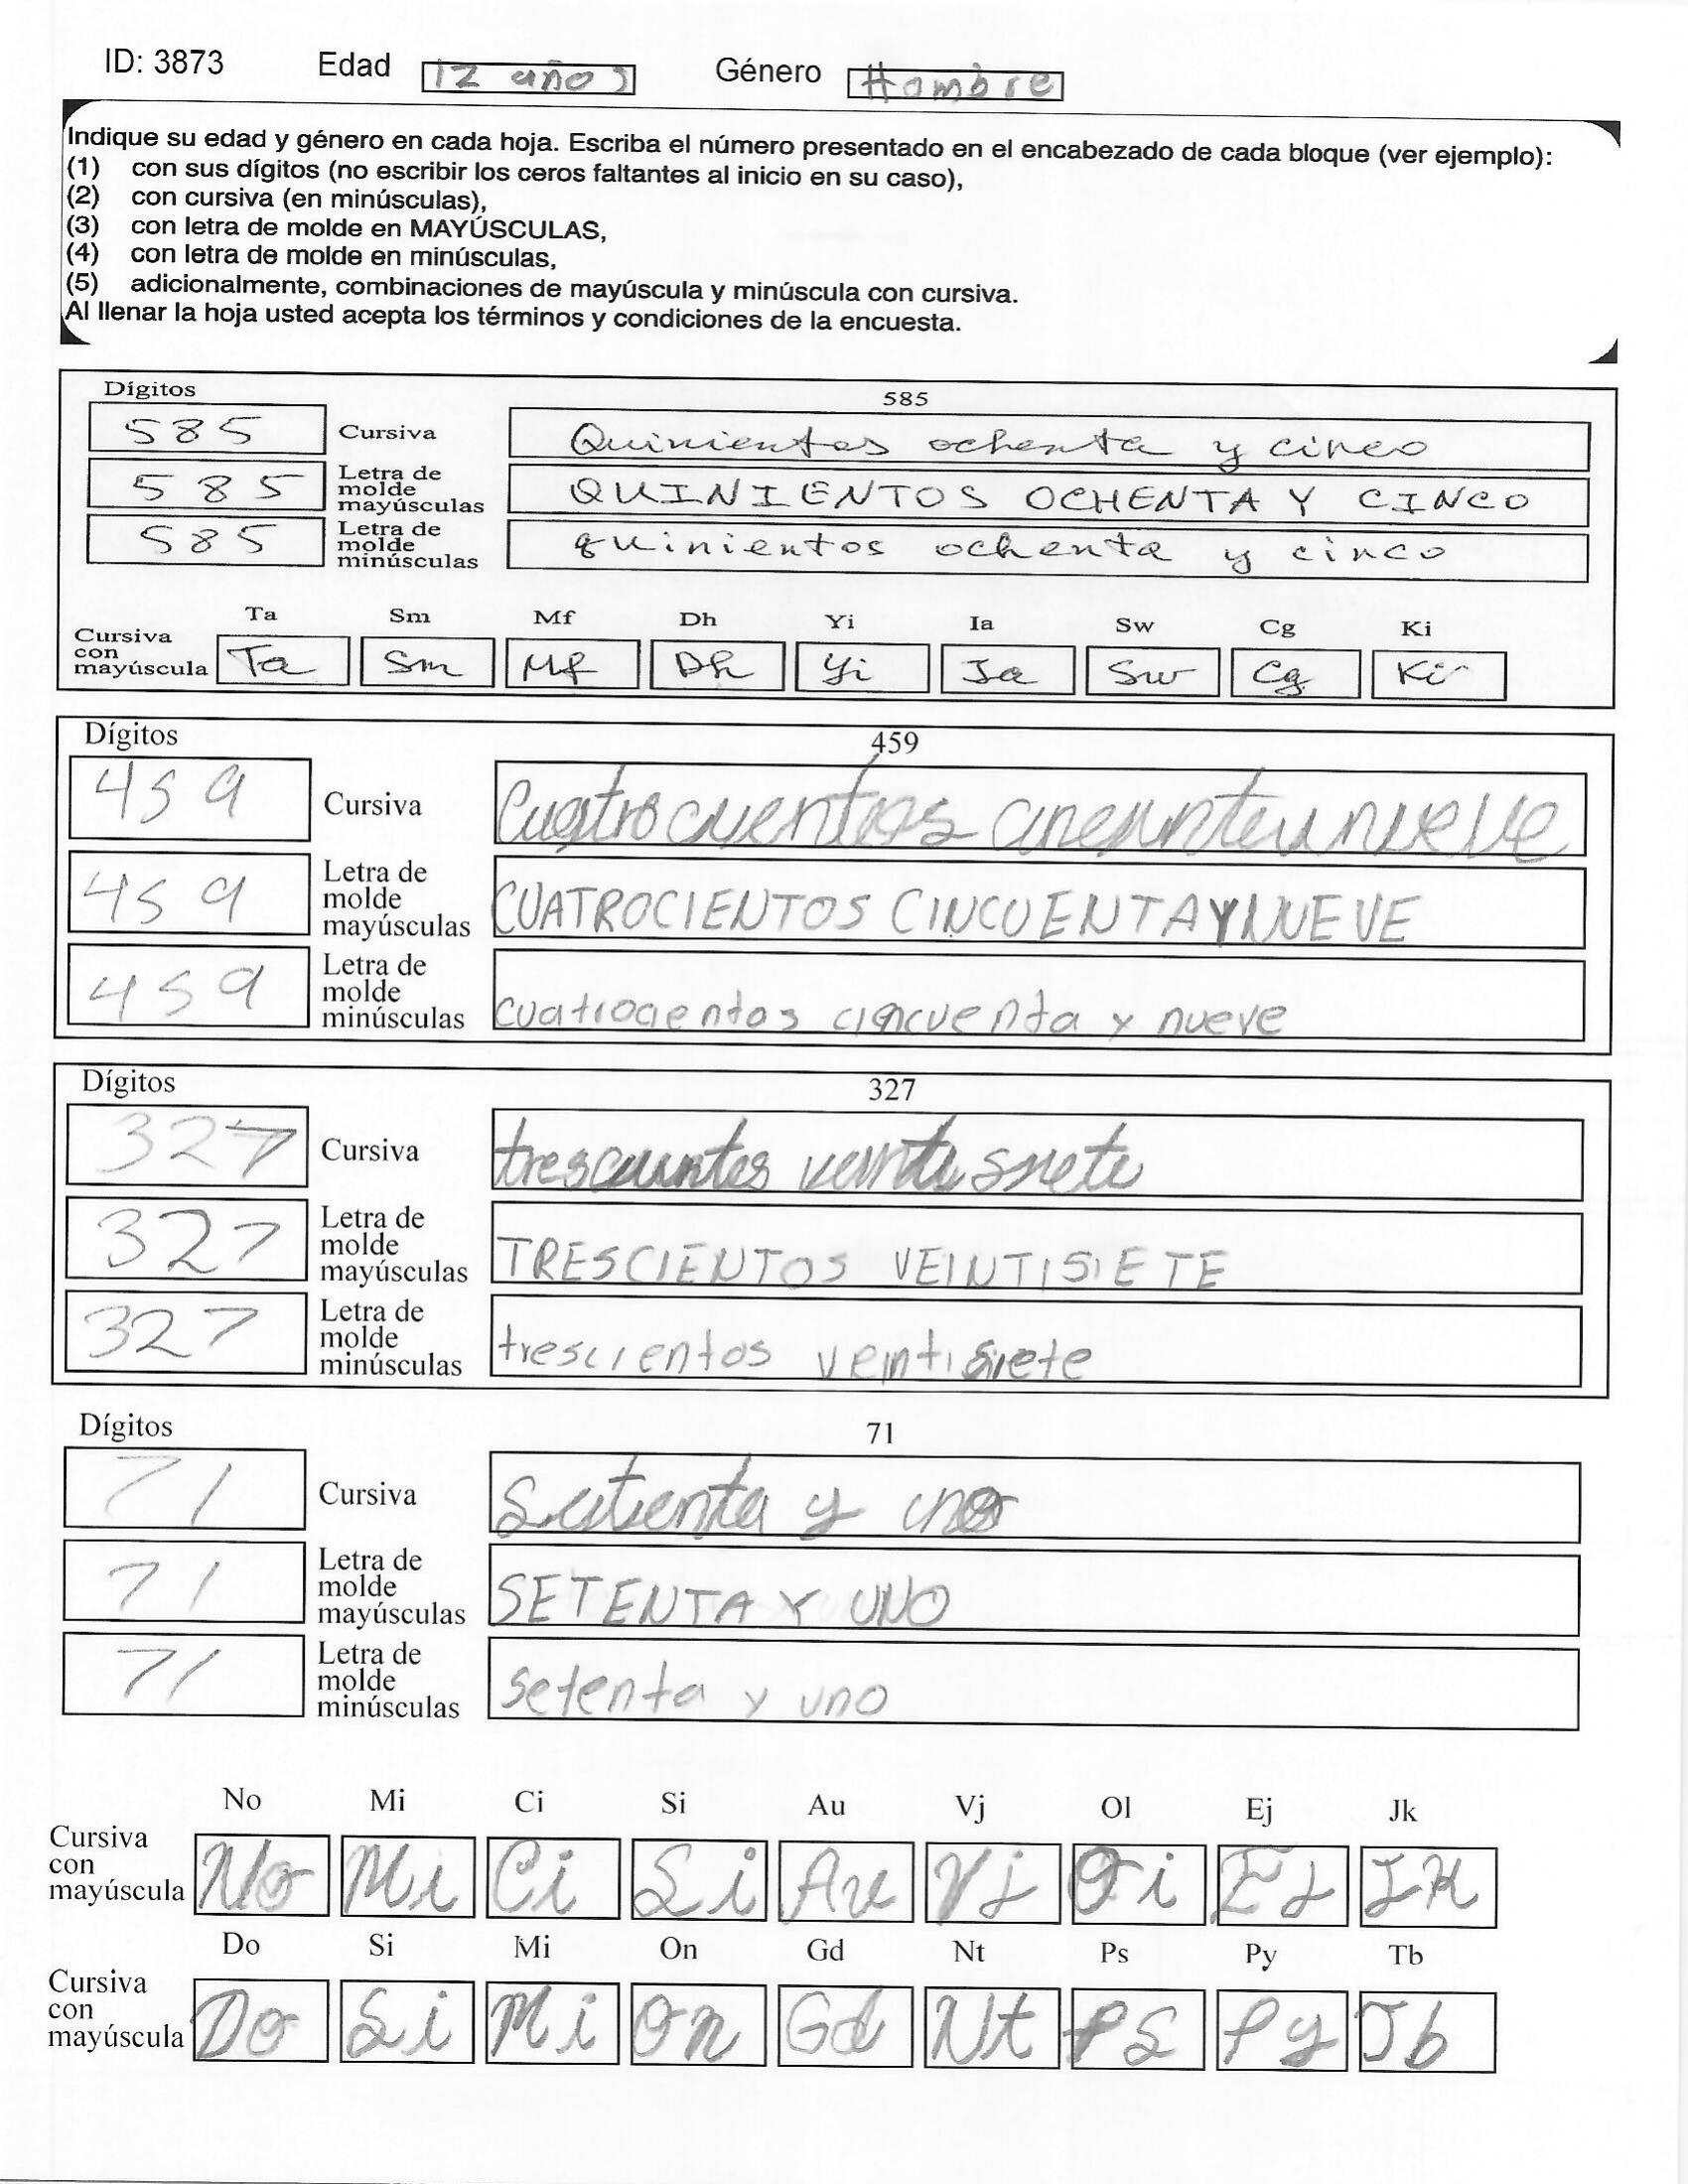 ID: 3873 Edad 12 años Género Hombre
Indique su edad y género en cada hoja. Escriba el número presentado en el encabezado de cada bloque (ver ejemplo):
(1) con sus dígitos (no escribir los ceros faltantes al inicio en su caso),
(2) con cursiva (en minúsculas),
(3) con letra de molde en MAYÚSCULAS,
(4) con letra de molde en minúsculas,
(5) adicionalmente, combinaciones de mayúscula y minúscula con cursiva.
Al llenar la hoja usted acepta los términos y condiciones de la encuesta.
Dígitos 585
585 Cursiva Quinientos ochenta y cinco
585 Letra de molde mayúsculas QUINIENTOS OCHENTA Y CINCO
585 Letra de molde minúsculas quinientos ochenta y cinco
Ta Sm Mf Dh Yi Ia Sw Cg Ki
Cursiva con mayúscula Ta Sm Mf Dh Yi Ia Sw Cg Ki
Dígitos 459
459 Cursiva
459 Letra de molde mayúsculas CUATROCIENTOS CINCUENTA Y NUEVE
459 Letra de molde minúsculas cincuenta y nueve
Dígitos 327
327 Cursiva
327 Letra de molde mayúsculas TRESCIENTOS VEINTISIETE
327 Letra de molde minúsculas trescientos veintisiete
Dígitos 71
71 Cursiva y uno
71 Letra de molde mayúsculas SETENTA Y UNO
71 Letra de molde minúsculas setenta y uno
No Mi Ci Si Au Vj Ol Ej Jk
Cursiva con mayúscula No Mi Ci Si Au Vj Oi Ej Jk
Do Si Mi On Gd Nt Ps Py Tb
Cursiva con mayúscula Do Si Mi On Gd Nt Ps Py Tb